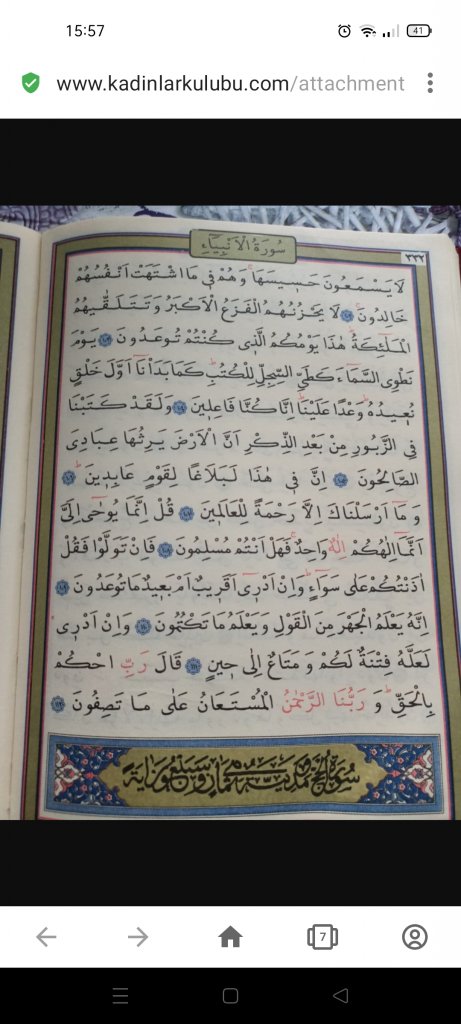 15:57
41
www.kadinlarkulubu.com/attachment
سُورَةُ الْاَنْبِيَاءِ
٣٣٢
لَا يَسْمَعُونَ حَسِيسَهَا وَهُمْ فِى مَا اشْتَهَتْ اَنْفُسُهُمْ
خَالِدُونَ لَا يَحْزُنُهُمُ الْفَزَعُ الْاَكْبَرُ وَتَتَلَقّٰيهُمُ
الْمَلٰٓئِكَةُ هٰذَا يَوْمُكُمُ الَّذِى كُنْتُمْ تُوعَدُونَ يَوْمَ
نَطْوِى السَّمَٓاءَ كَطَيِّ السِّجِلِّ لِلْكُتُبِ كَمَا بَدَأْنَٓا اَوَّلَ خَلْقٍ
نُعِيدُهُ وَعْدًا عَلَيْنَا اِنَّا كُنَّا فَاعِلِينَ وَلَقَدْ كَتَبْنَا
فِى الزَّبُورِ مِنْ بَعْدِ الذِّكْرِ اَنَّ الْاَرْضَ يَرِثُهَا عِبَادِىَ
الصَّالِحُونَ اِنَّ فِى هٰذَا لَبَلَاغًا لِقَوْمٍ عَابِدِينَ
وَمَٓا اَرْسَلْنَاكَ اِلَّا رَحْمَةً لِلْعَالَمِينَ قُلْ اِنَّمَا يُوحٰٓى اِلَىَّ
اَنَّمَٓا اِلٰهُكُمْ اِلٰهٌ وَاحِدٌ فَهَلْ اَنْتُمْ مُسْلِمُونَ فَاِنْ تَوَلَّوْا فَقُلْ
اٰذَنْتُكُمْ عَلٰى سَوَٓاءٍ وَاِنْ اَدْرِٓى اَقَرِيبٌ اَمْ بَعِيدٌ مَا تُوعَدُونَ
اِنَّهُ يَعْلَمُ الْجَهْرَ مِنَ الْقَوْلِ وَيَعْلَمُ مَا تَكْتُمُونَ وَاِنْ اَدْرِى
لَعَلَّهُ فِتْنَةٌ لَكُمْ وَمَتَاعٌ اِلٰى حِينٍ قَالَ رَبِّ احْكُمْ
بِالْحَقِّ وَرَبُّنَا الرَّحْمٰنُ الْمُسْتَعَانُ عَلٰى مَا تَصِفُونَ
سُورَةُ الْحَجِّ مَدَنِيَّةٌ وَهِىَ ثَمَانٍ وَسَبْعُونَ اٰيَةً
7